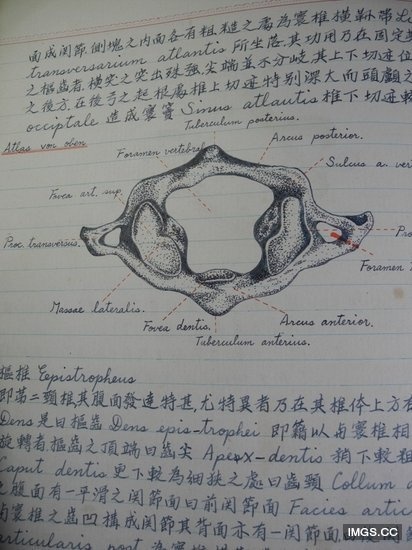 面成关節.側塊之内面各有粗糙之處為寰椎横靱帶
transversarium atlantis 所坐落.其功用乃在固定
之樞齒者.横突之突出殊強.尖端並不分岐.其上下切迹位
之後方.在後弓之起根處.椎上切迹特别深大.而頭顱之
occiptale 造成寰竇 Sinus atlautis 椎下切迹較
Atlas von oben
Tuberculum posterius.
Foramen vertebral
Arcus posterior.
Fovea art. sup.
Sulcus a. ver
Proc. transversus.
Pro
Foramen
Massae lateralis.
Fovea dentis.
Arcus anterior.
Tuberculum anterius.
樞椎 Epistropheus
即第二頸椎其腹面發達特甚.尤特異者乃在其椎体上方有
Dens 是曰樞齒 Dens epis-trophei 即籍以与寰椎相
旋轉者樞齒之頂端曰齒尖 Apex-dentis 稍下較粗
Caput dentis 更下較為細挟之處曰齒頸 Collum
之腹面有一平滑之关節面曰前关節面 Facies artic
与寰椎之齒凹構成关節其背面亦有一关節面
articularis post 為寰椎
IMGS.CC